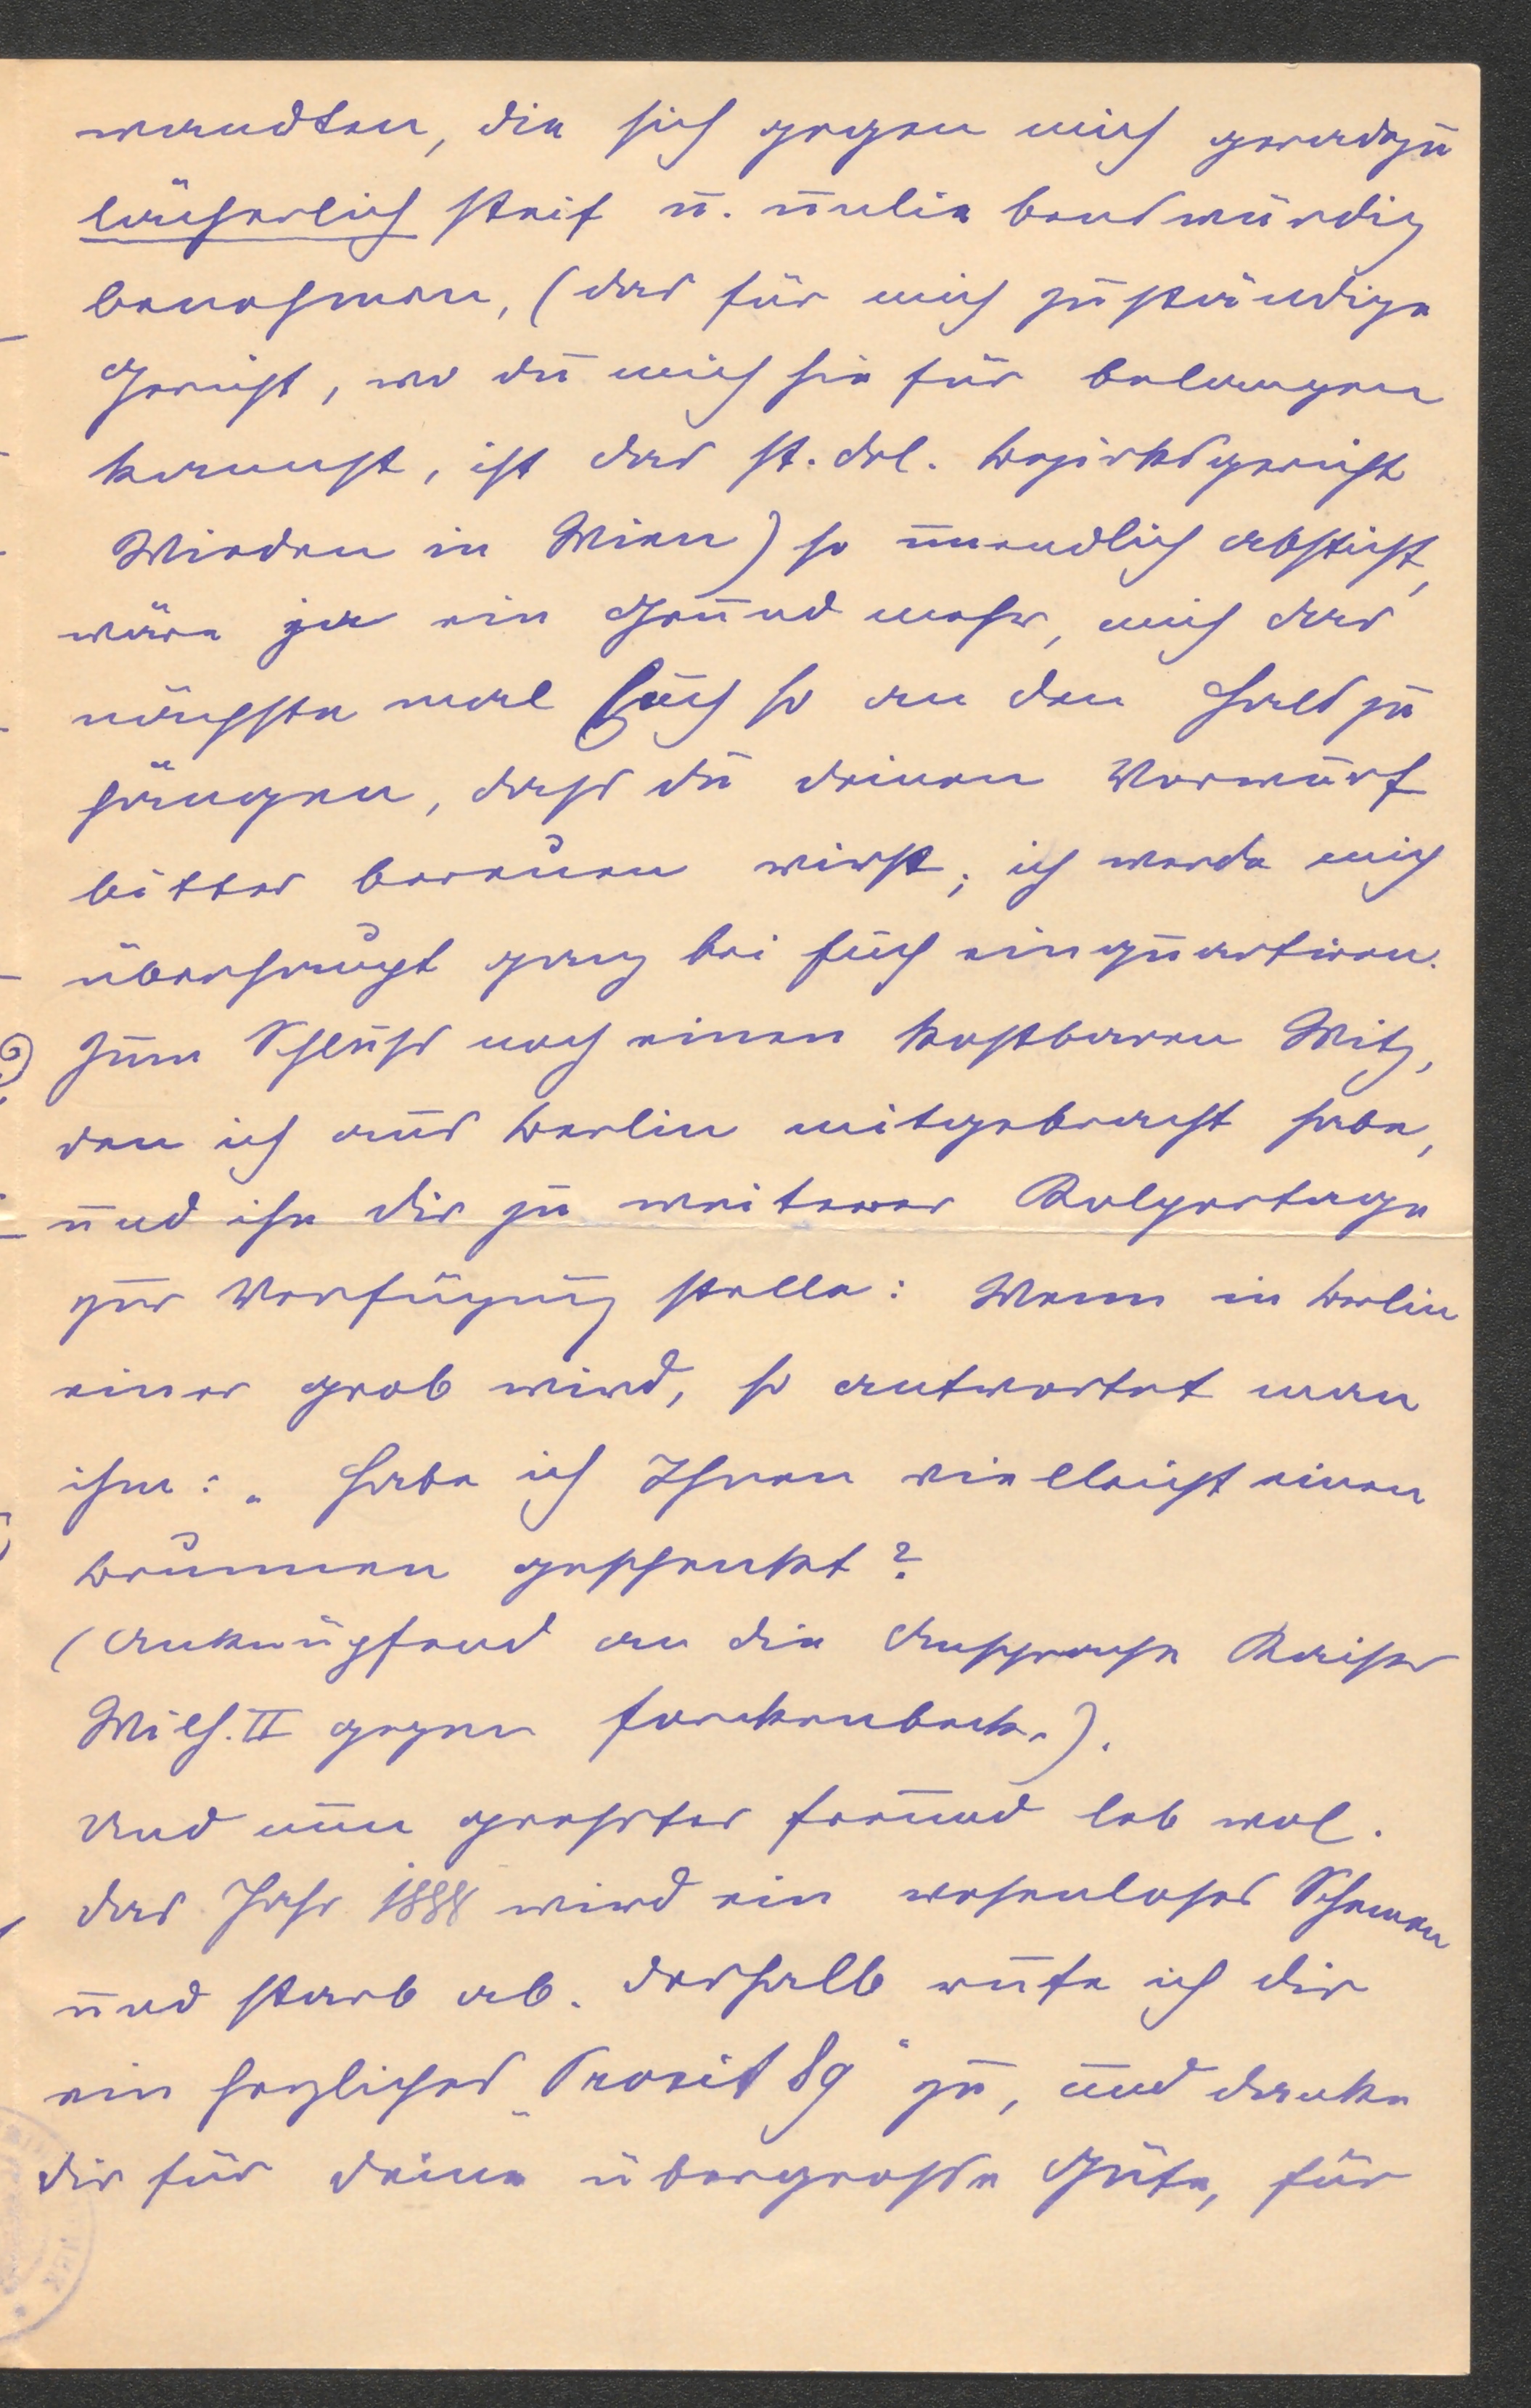 wandten, die sich gegen mich geradezu
lächerlich steif u. unliebenswürdig
benahmen, (das für mich zuständige
Gericht, wo du mich hiefür belangen
kannst, ist das st. del. Bezirksgericht
Wieden in Wien) so unendlich absticht,
wäre ja ein Grund mehr, mich das
nächste mal Euch so an den Hals zu
hängen, dass du deinen Vorwurf
bitter bereuen wirst; ich werde mich
überhaupt ganz bei Euch einquartiren.
Zum Schluss noch einen kostbaren Witz,
den ich aus Berlin mitgebracht habe,
und ihn dir zu weiterer Kolportage
zur Verfügung stelle: Wenn in Berlin
einer grob wird, so antwortet man
ihm: „Habe ich Ihnen vielleicht einen
Brunnen geschenkt?
(Anknüpfend an die Ansprache Kaiser
Wilh. II gegen Forckenbeck.).
Und nun grosster Freund leb wol.
Das Jahr 1888 wird ein wesenloses Schemen
und starb ab. Deshalb rufe ich dir
ein herzliches „Prosit 89" zu, und danke
dir für deine übergrosse Güte, für